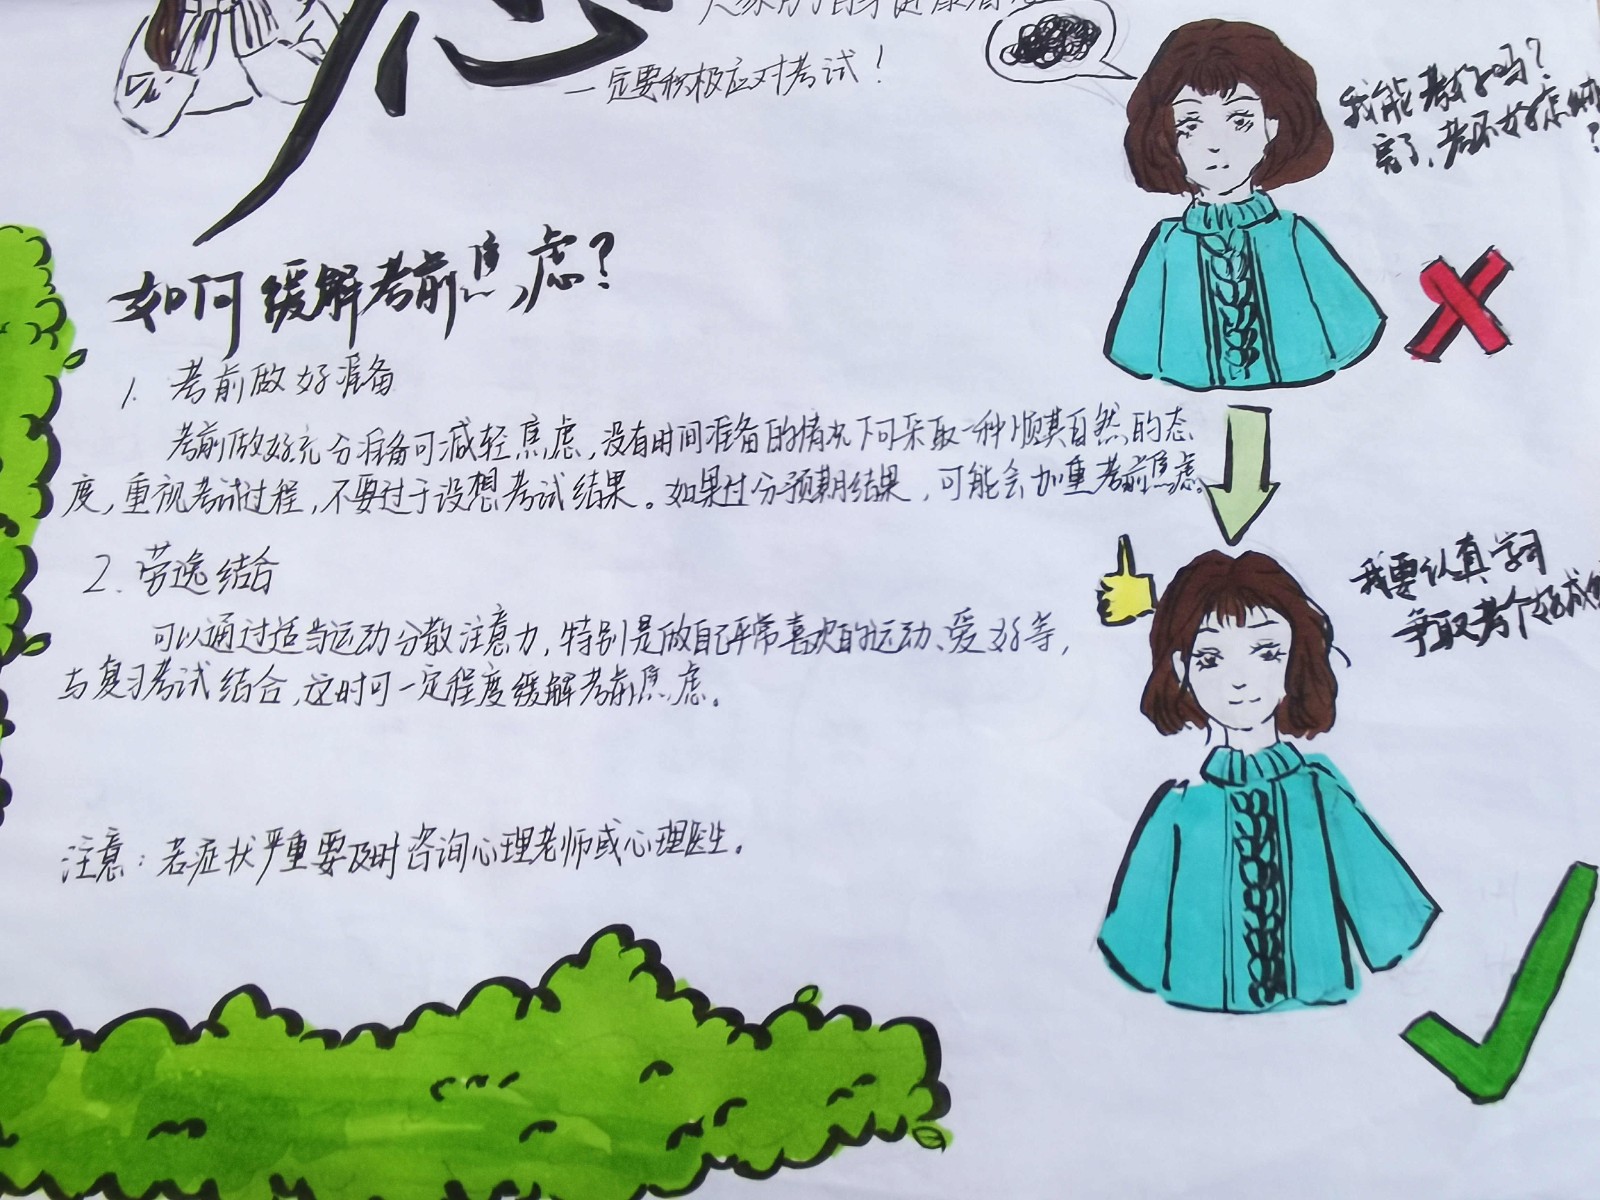 一定要积极应对考试！
我能考好吗？
完了，考不好怎么
？
如何缓解考前焦虑？
1. 考前做好准备
考前做好充分准备可减轻焦虑，没有时间准备的情况下可采取一种顺其自然的态
度，重视考试过程，不要过于设想考试结果。如果过分预期结果，可能会加重考前焦虑。
2. 劳逸结合
可以通过适当运动分散注意力，特别是做自己平常喜欢的运动、爱好等，
与复习考试结合，这时可一定程度缓解考前焦虑。
我要认真学习
争取考个好成绩
注意：若症状严重要及时咨询心理老师或心理医生。